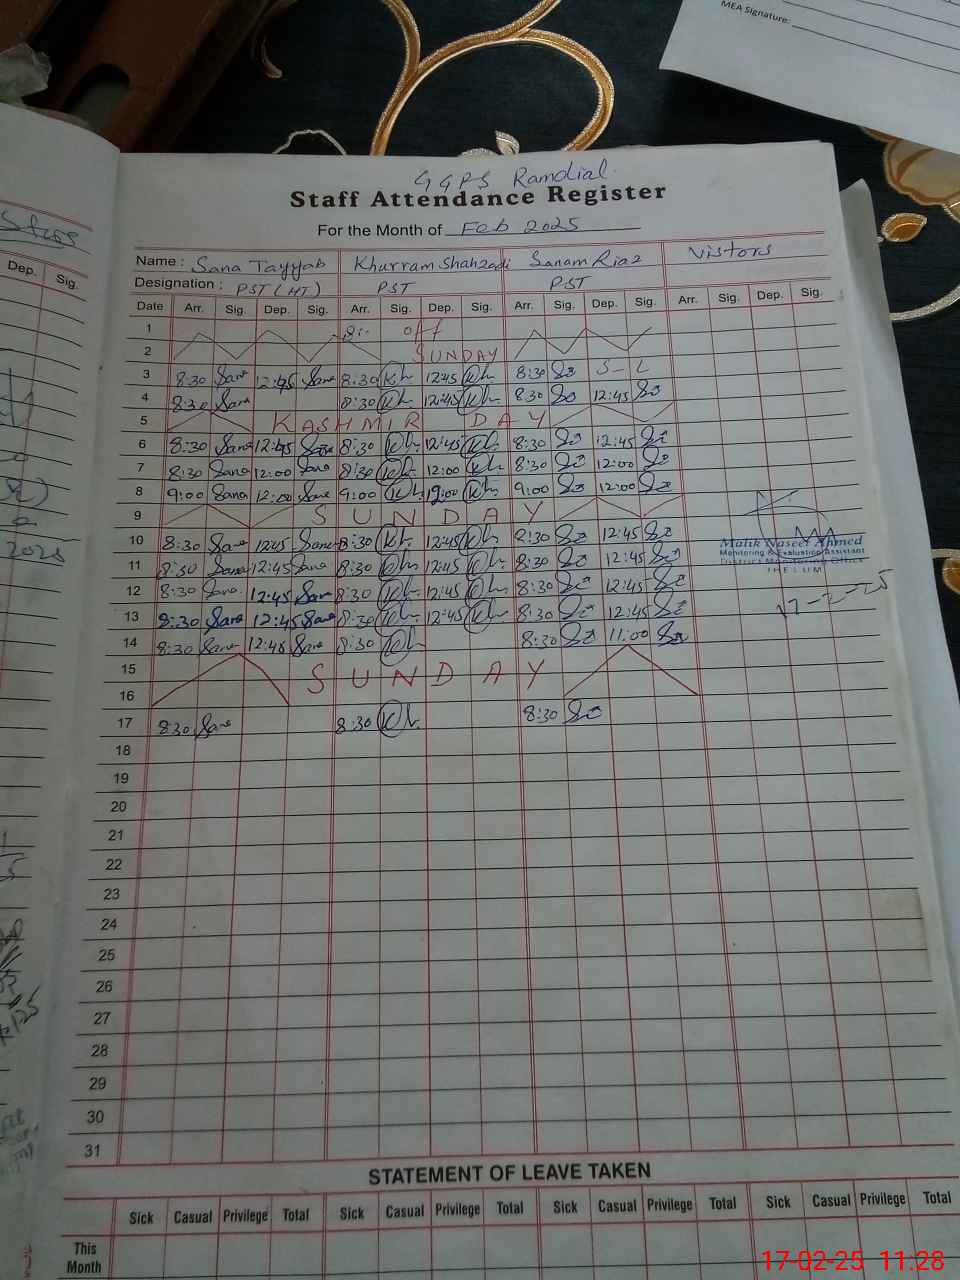 MEA Signature:
GGPS Ramdial
Staff Attendance Register
For the Month of Feb 2025
Name : Sana Tayyab Khurram Shahzadi Sanam Riaz Vistors
Designation : PST (HT) PST PST
Dep. Sig.
Date Arr. Sig. Dep. Sig. Arr. Sig. Dep. Sig. Arr. Sig. Dep. Sig. Arr. Sig. Dep. Sig.
1 8:- off
2 SUNDAY
3 8:30 Sana 12:45 Sana 8:30 Kh 12:45 Kh 8:30 S-L
4 8:30 Sana 8:30 Kh 12:45 Kh 8:30 12:45
5 KASHMIR DAY
6 8:30 Sana 12:45 Sana 8:30 Kh 12:45 Kh 8:30 12:45
7 8:30 Sana 12:00 Sana 8:30 Kh 12:00 Kh 8:30 12:00
8 9:00 Sana 12:00 Sana 9:00 Kh 12:00 Kh 9:00 12:00
9 SUNDAY
10 8:30 Sana 12:45 Sana 8:30 Kh 12:45 Kh 8:30 12:45
11 8:30 Sana 12:45 Sana 8:30 Kh 12:45 Kh 8:30 12:45
12 8:30 Sana 12:45 Sana 8:30 Kh 12:45 Kh 8:30 12:45
13 8:30 Sana 12:45 Sana 8:30 Kh 12:45 Kh 8:30 12:45
14 8:30 Sana 12:45 Sana 8:30 Kh 8:30 11:00
Malik Naseer Ahmed
Monitoring & Evaluation Assistant
District Monitoring Office
JHELUM
17-2-25
15 SUNDAY
16
17 8:30 Sana 8:30 Kh 8:30
18
19
20
21
22
23
24
25
26
27
28
29
30
31
STATEMENT OF LEAVE TAKEN
Sick Casual Privilege Total Sick Casual Privilege Total Sick Casual Privilege Total Sick Casual Privilege Total
This Month
2025
17-02-25 11:28